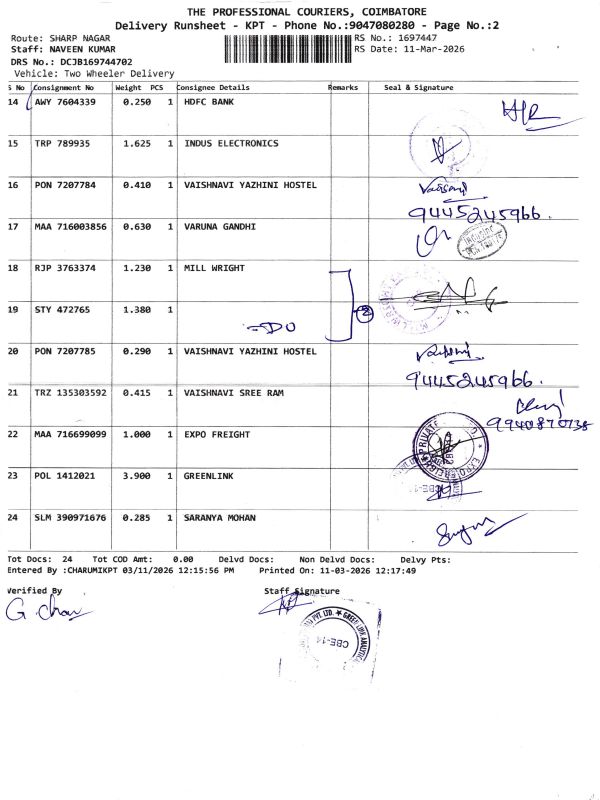 THE PROFESSIONAL COURIERS, COIMBATORE
Delivery Runsheet - KPT - Phone No.:9047080280 - Page No.:2
Route: SHARP NAGAR RS No.: 1697447
Staff: NAVEEN KUMAR RS Date: 11-Mar-2026
DRS No.: DCJB169744702
Vehicle: Two Wheeler Delivery
S No Consignment No Weight PCS Consignee Details Remarks Seal & Signature
14 AWY 7604339 0.250 1 HDFC BANK
15 TRP 789935 1.625 1 INDUS ELECTRONICS
16 PON 7207784 0.410 1 VAISHNAVI YAZHINI HOSTEL
9445245966.
17 MAA 716003856 0.630 1 VARUNA GANDHI
18 RJP 3763374 1.230 1 MILL WRIGHT
19 STY 472765 1.380 1
=DO 2
20 PON 7207785 0.290 1 VAISHNAVI YAZHINI HOSTEL
9445245966.
21 TRZ 135303592 0.415 1 VAISHNAVI SREE RAM
9940870738
22 MAA 716699099 1.000 1 EXPO FREIGHT
EXPO FREIGHT PRIVATE
23 POL 1412021 3.900 1 GREENLINK
CBE-14
24 SLM 390971676 0.285 1 SARANYA MOHAN
Tot Docs: 24 Tot COD Amt: 0.00 Delvd Docs: Non Delvd Docs: Delvy Pts:
Entered By :CHARUMIKPT 03/11/2026 12:15:56 PM Printed On: 11-03-2026 12:17:49
Verified By Staff Signature
G. Charu
PVT. LTD. * GREEN LINK ANALYTICAL
CBE-14